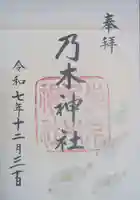 奉拝
乃木神社
令和七年十二月三十日